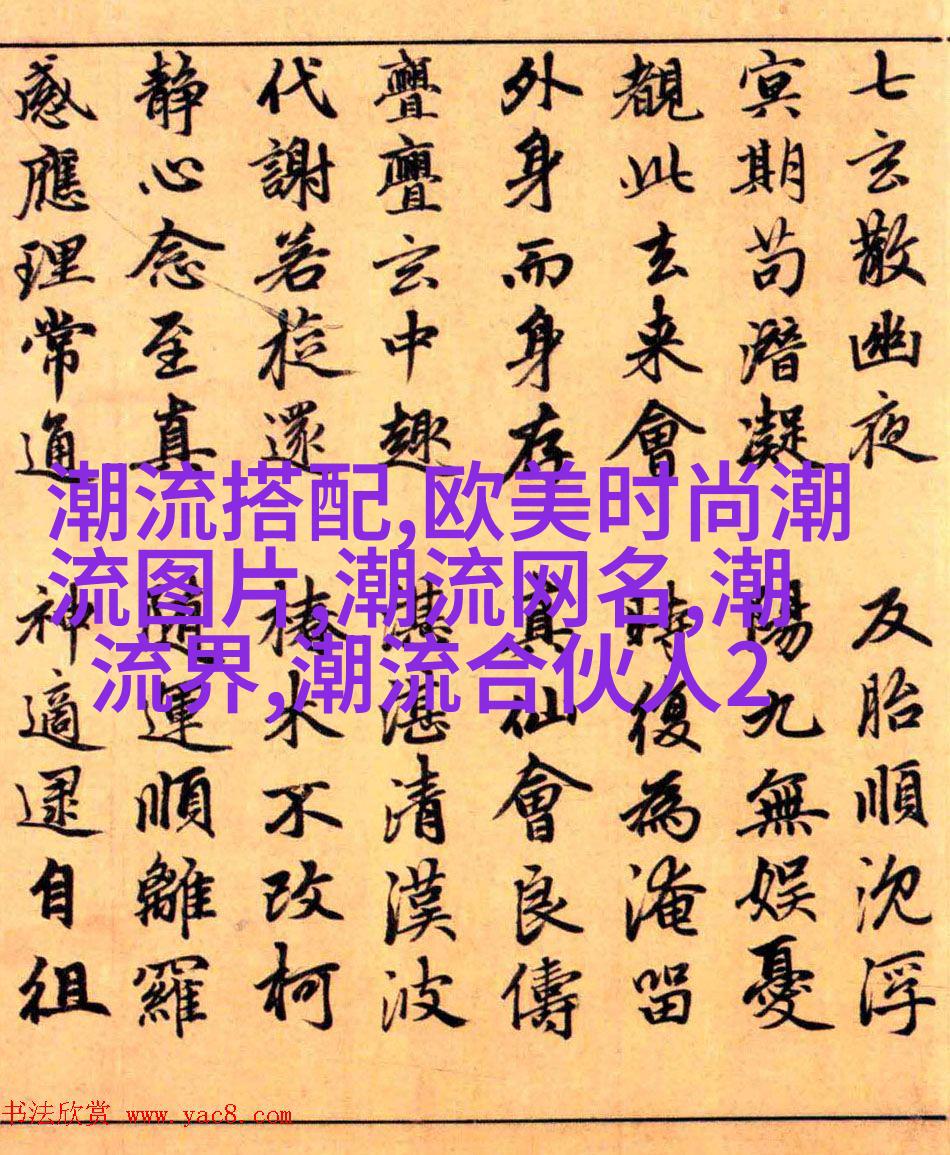 七玄散幽夜 反胎順沈浮
冥期苟潛凝 陽九無娛憂
覩此去来會 時復為淹留
外身而身存 真仙會良儔
亹亹玄中趣 湛湛清漢波
代謝若旋還 椿木不改柯
静心念至真 隨運順離羅
感應理常通 神適逮自徂
潮流搭配,欧美时尚潮
流图片,潮流网名,潮
流界,潮流合伙人2
书法欣赏 www.yac8.com